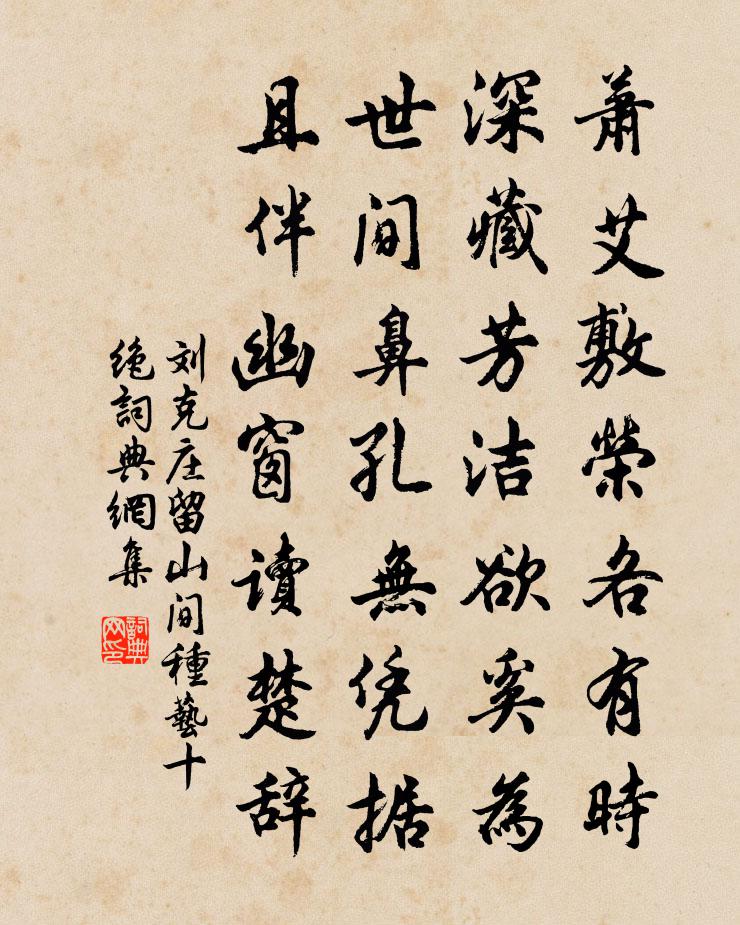 蕭艾敷榮各有時
深藏芳洁欲奚為
世间鼻孔無凭据
且伴幽窗读楚辞
刘克庄留山间種藝十
绝詞典網集
詞典网印